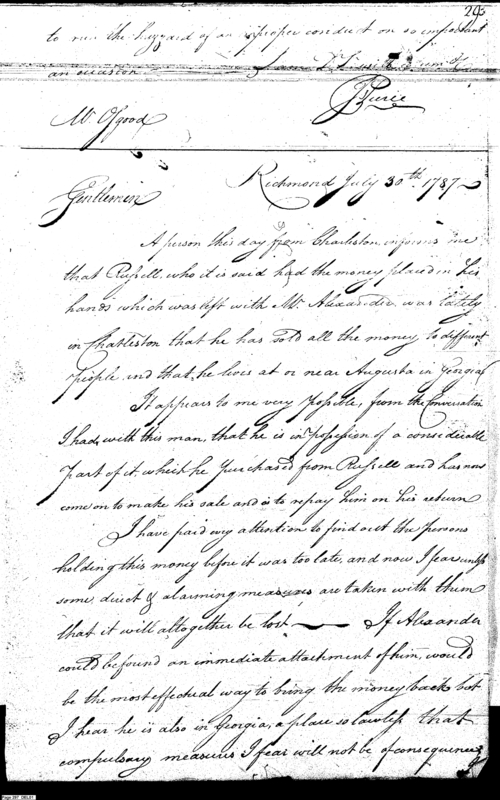 293
to run the hazzard of an improper conduct on so important
an occasion. I am
Pierce
Mr. Osgood
Richmond July 30th. 1787
Gentlemen
A person this day from Charleston informs me
that Russell who it is said had the money placed in his
hands which was left with Mr. Alexander was lately
in Charleston that he has sold all the money to different
people and that he lives at or near Augusta in Georgia
It appears to me very possible, from the Conversation
I had with this man, that he is in possession of a considerable
part of it, which he purchased from Russell and has now
come on to make his sale and is to repay him on his return
I have paid every attention to find out the persons
holding this money before it was too late, and now I fear unless
some direct & alarming measures are taken with them
that it will altogether be lost — If Alexander
could be found an immediate attachment of him, would
be the most effectual way to bring the money back but
I hear he is also in Georgia, a place so lawless that
compulsary measures I fear will not be of consequence